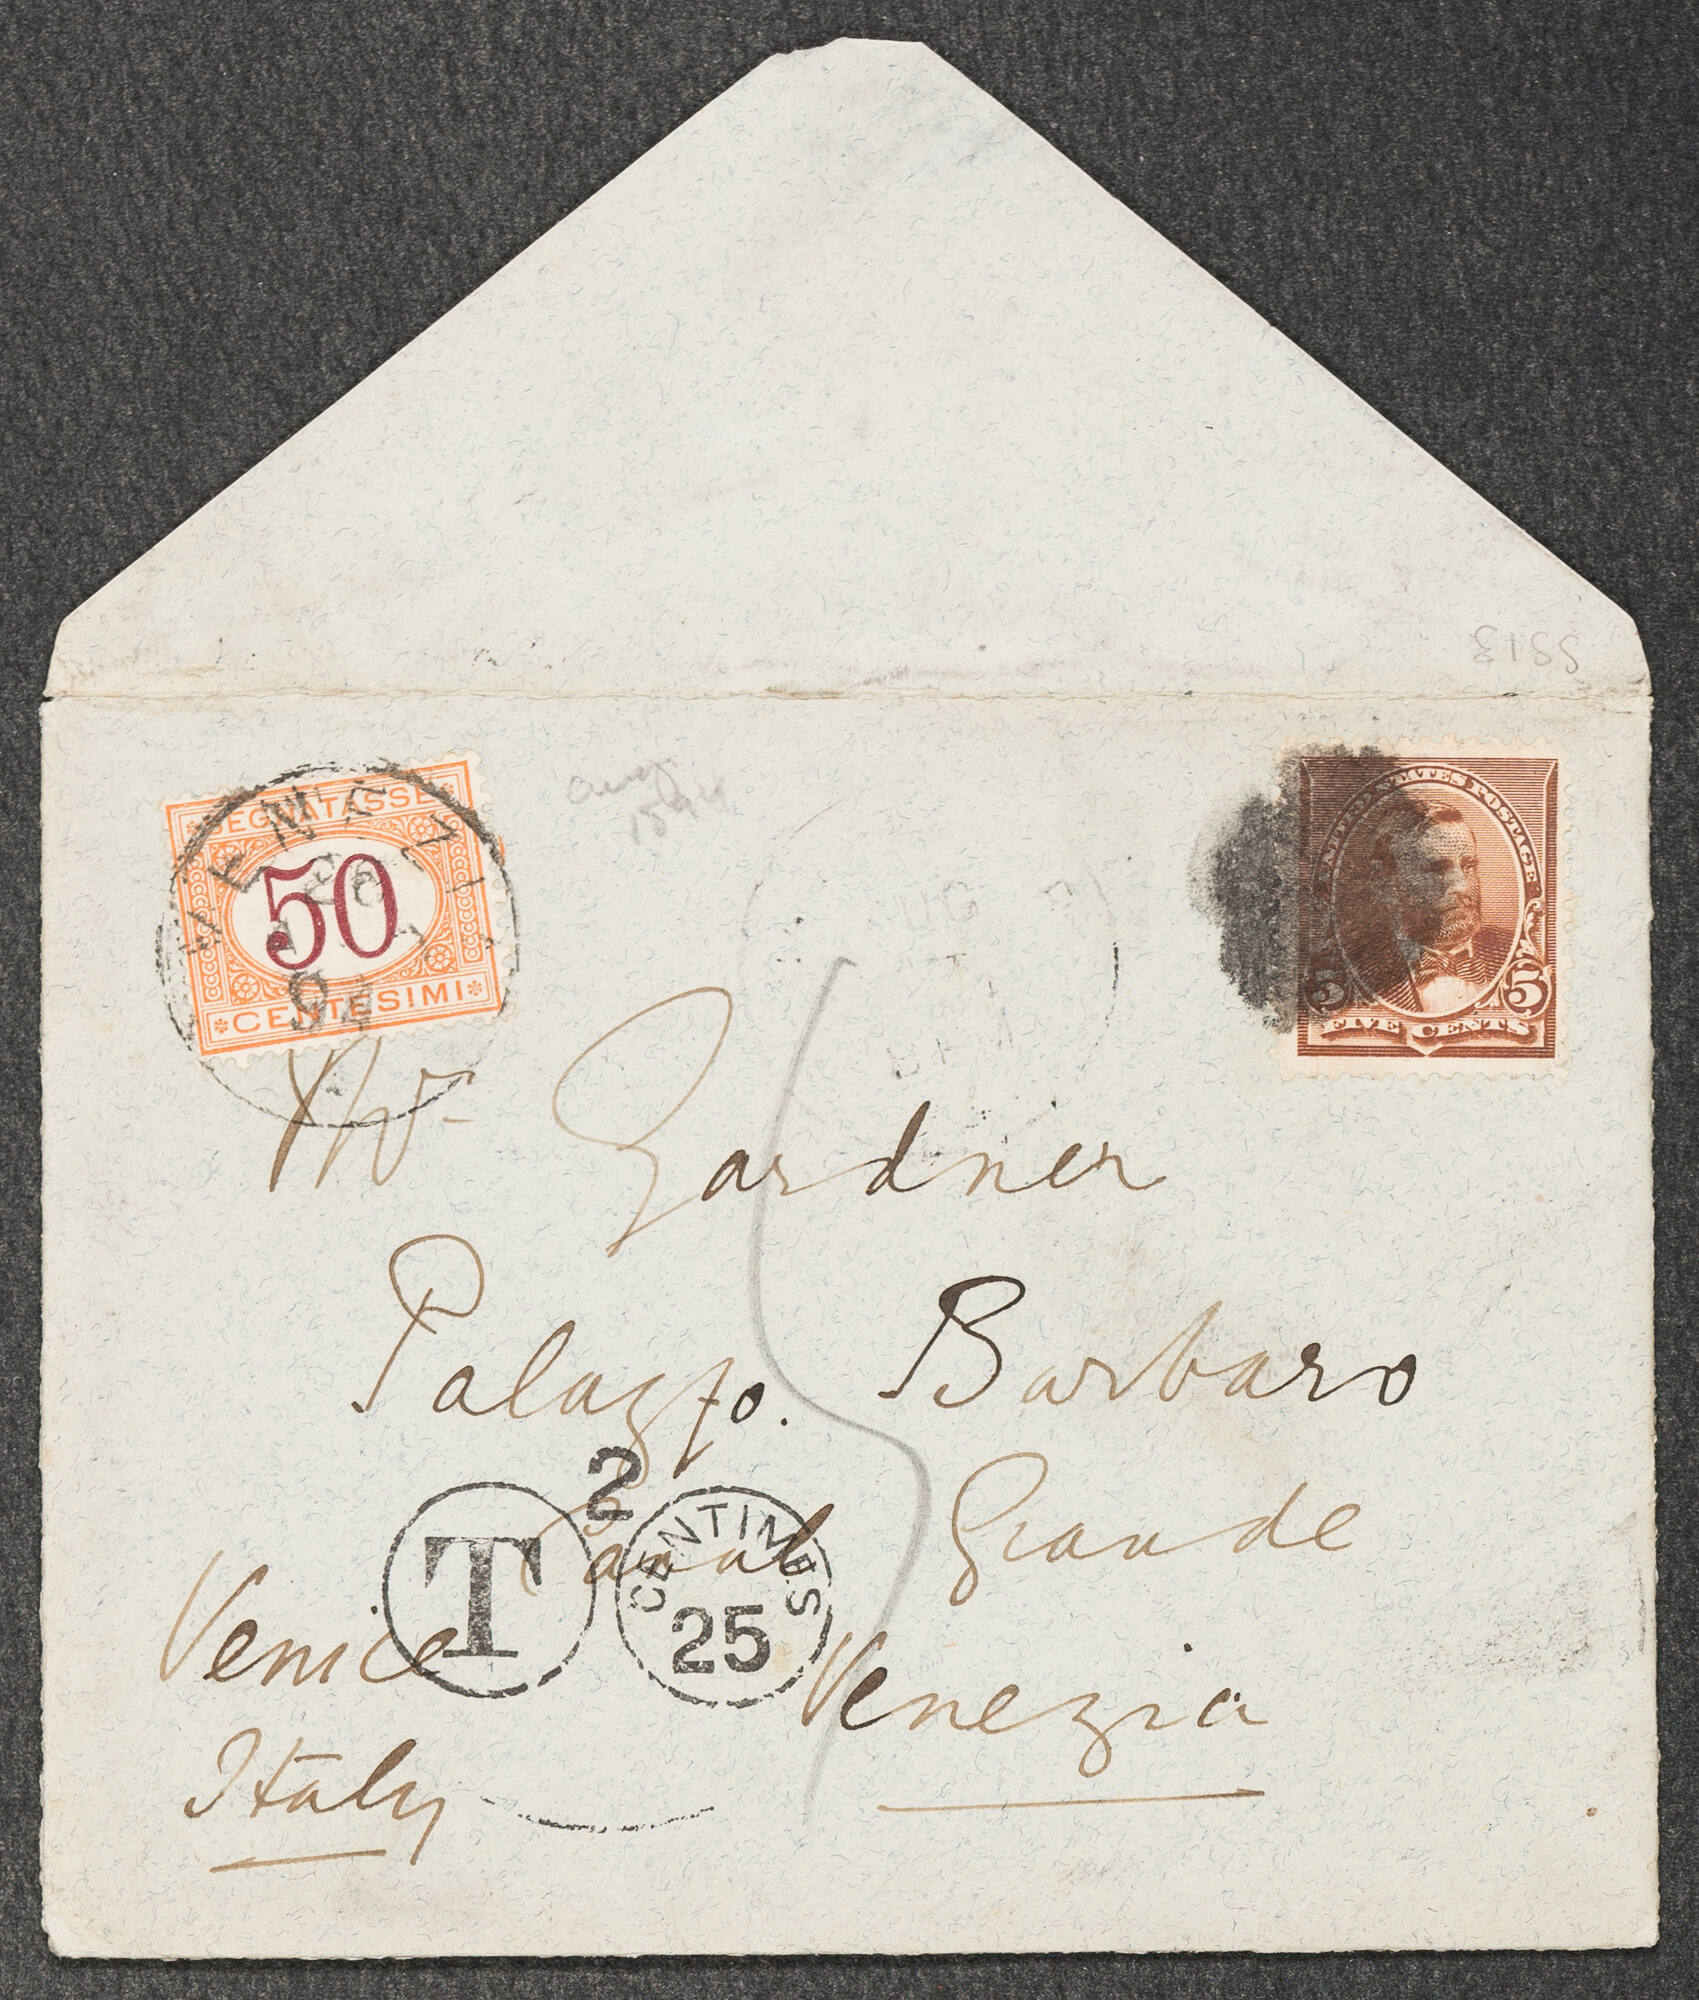 SS13
SEGNATASSE
50
CENTESIMI
VENEZIA
Aug
1894
UNITED STATES POSTAGE
5 5
FIVE CENTS
Mrs Gardner
Palazzo. Barbaro
Canal Grande
Venezia
Venice
Italy
T
2
CENTIMES
25